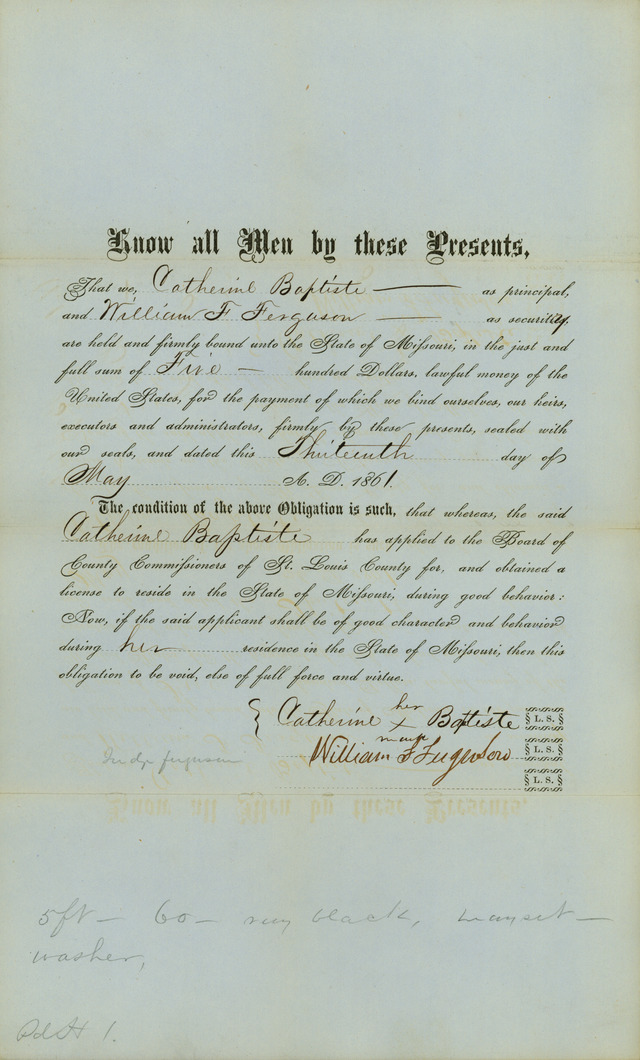 Know all Men by these Presents,
That we, Catherine Baptiste — as principal,
and William F Ferguson — as security,
are held and firmly bound unto the State of Missouri, in the just and
full sum of Five — hundred Dollars, lawful money of the
United States, for the payment of which we bind ourselves, our heirs,
executors and administrators, firmly by these presents, sealed with
our seals, and dated this Thirteenth day of
May A. D. 1861.
The condition of the above Obligation is such, that whereas, the said
Catherine Baptiste has applied to the Board of
County Commissioners of St. Louis County for, and obtained a
license to reside in the State of Missouri, during good behavior:
Now, if the said applicant shall be of good character and behavior
during her residence in the State of Missouri, then this
obligation to be void, else of full force and virtue.
her
Catherine X Baptiste L. S.
mark
William F Ferguson L. S.
Judge ferguson
L. S.
5 ft — 60 — black,
washer,
1.